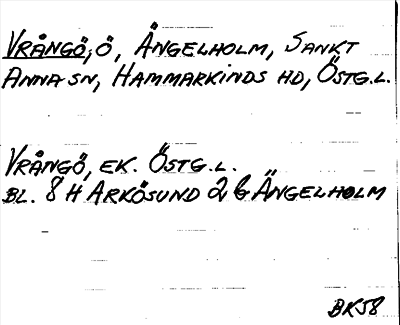 VRÅNGÖ, Ö, ÄNGELHOLM, SANKT
ANNA SN, HAMMARKINDS HD, ÖSTG.L.
VRÅNGÖ, EK. ÖSTG.L.
BL. 8 H ARKÖSUND 2 b ÄNGELHOLM
BK58